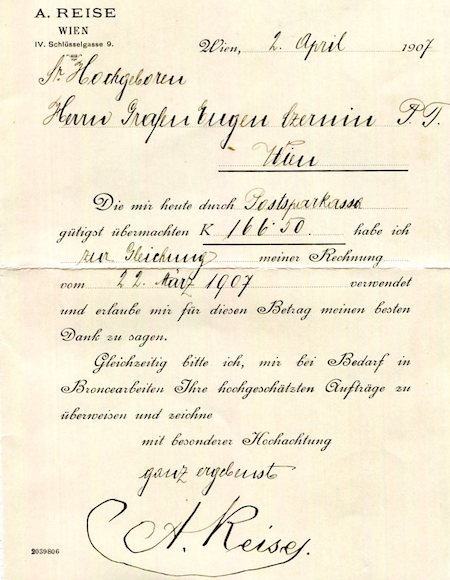 A. REISE
WIEN
IV. Schlüsselgasse 9.
Wien, 2. April 1907
Sr. Hochgeboren
Herrn Grafen Eugen Czernin P. T.
Wien
Die mir heute durch Postsparkassa
gütigst übermachten K 166·50. habe ich
zur Gleichung meiner Rechnung
vom 22. März 1907 verwendet
und erlaube mir für diesen Betrag meinen besten
Dank zu sagen.
Gleichzeitig bitte ich, mir bei Bedarf in
Broncearbeiten Ihre hochgeschätzten Aufträge zu
überweisen und zeichne
mit besonderer Hochachtung
ganz ergebenst
A. Reise.
2039806